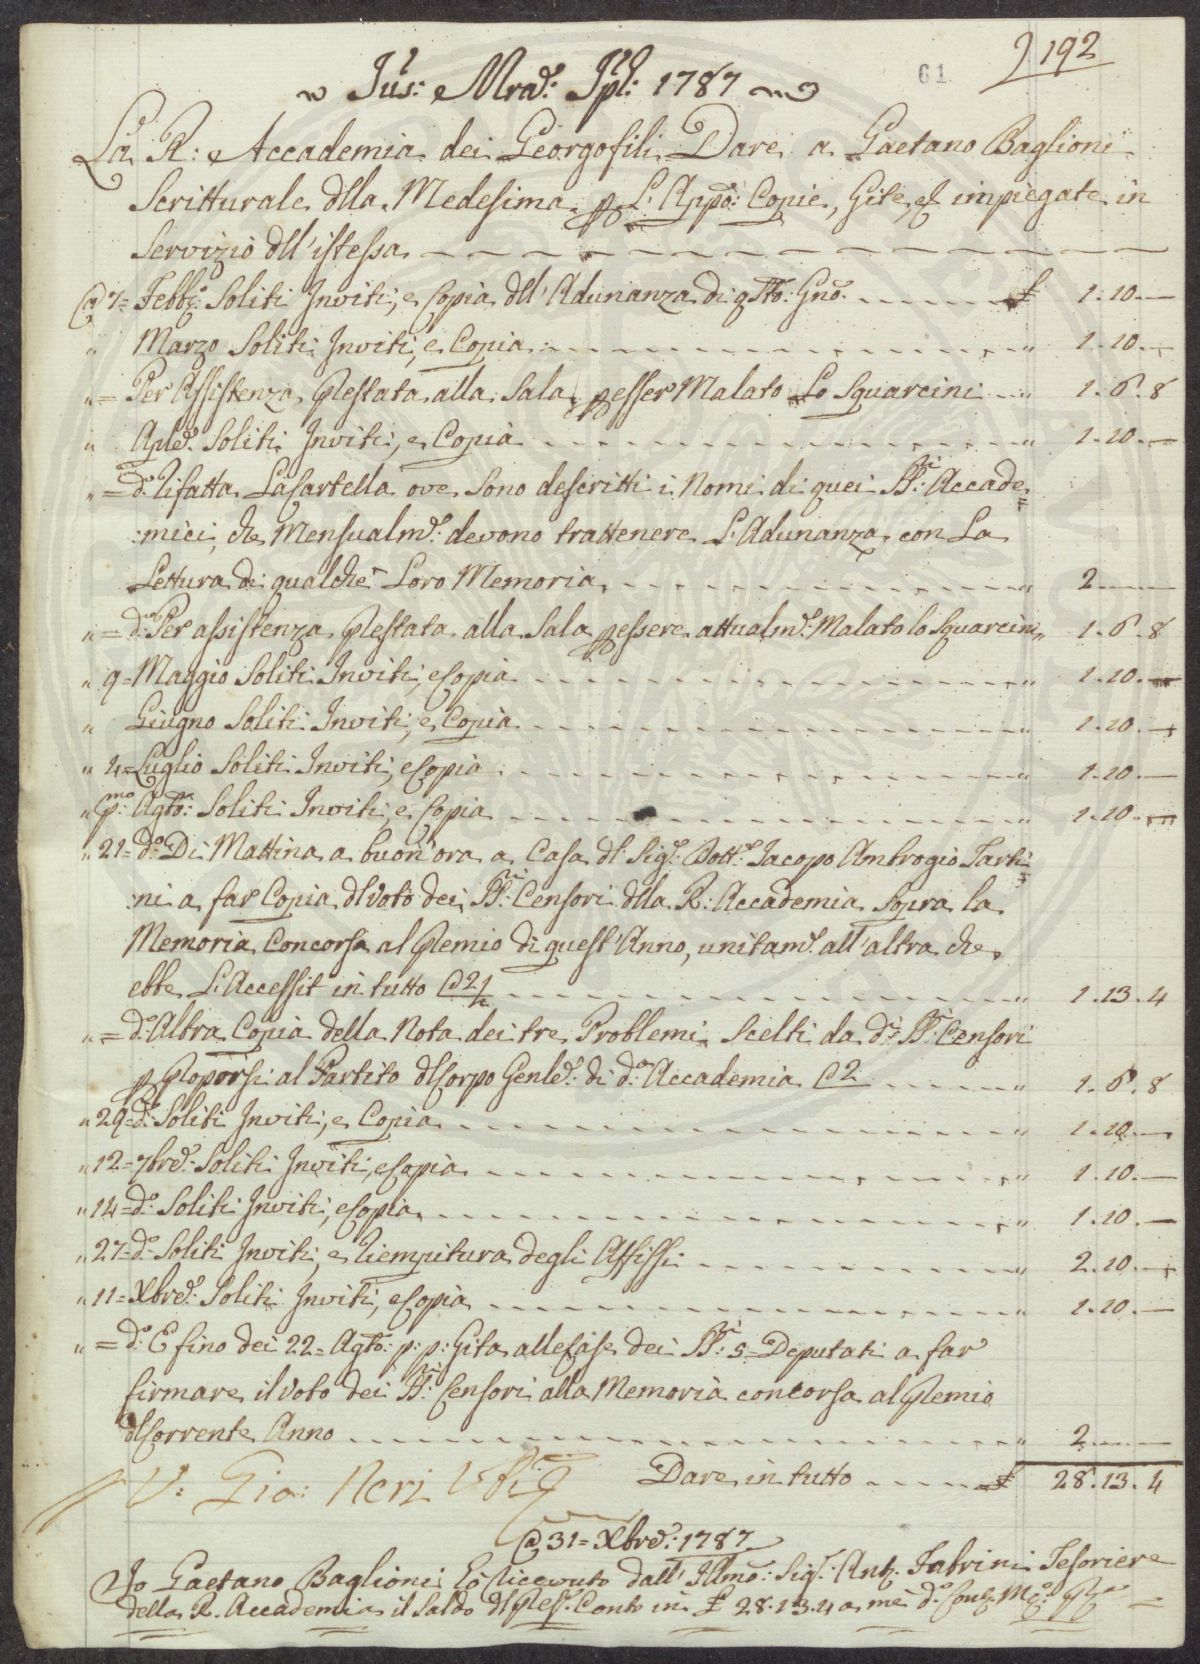 192
61
Jus: Mrad: Jpl: 1787
La R: Accademia dei Georgofili Dare a Gaetano Baglioni
Scritturale dlla Medesima p L'Appō: Copie, Gite, ef impiegate in
Servizio dll'istessa
@ 7= Febb: Soliti Inviti, e Copia dll'Adunanza di qsto: Gno. £ 1.10.—
" Marzo Soliti Inviti, e Copia " 1.10.—
"= Per Assistenza Prestata alla Sala p esser Malato Lo Squarcini " 1.6.8
" Aple: Soliti Inviti, e Copia " 1.10.—
"= do: Rifatta La Cartella ove sono descritti i Nomi di quei SS:ri Accade=
:mici, che Mensualme: devono trattenere L'Adunanza con La
Lettura di qualche Loro Memoria " 2.—
"= do: Per assistenza Prestata alla Sala p essere attualme: Malato lo Squarcini " 1.6.8
" 9= Maggio Soliti Inviti, e Copia " 1.10.—
" Giugno Soliti Inviti, e Copia " 1.10.—
" 4= Luglio Soliti Inviti, e Copia " 1.10.—
" pmo: Agto: Soliti Inviti, e Copia " 1.10.—
" 21= do: Di Mattina a buon'ora a Casa dl Sigr: Dottr: Jacopo Ambrogio Tarti=
:ni a far Copia dl Voto dei SS:ri Censori dlla R: Accademia sopra la
Memoria Concorsa al Premio di quest'Anno, unitame: all'altra che
ebbe L'Accessit in tutto C 2½ " 1.13.4
"= do: Altra Copia della Nota dei tre Problemi scelti da di SS:ri Censori
p Proporsi al Partito dl Corpo Genle: di da: Accademia C 2 " 1.6.8
" 29= do: Soliti Inviti, e Copia " 1.10.—
" 12= 7bre: Soliti Inviti, e Copia " 1.10.—
" 14= do: Soliti Inviti, e Copia " 1.10.—
" 27= do: Soliti Inviti, e Riempitura degli Affissi " 2.10.—
" 11= Xbre: Soliti Inviti, e Copia " 1.10.—
"= do: E fino dei 22= Agto: p: p: Gita alle Case dei SS:ri 5= Deputati a far
firmare il Voto dei SS:ri Censori alla Memoria concorsa al Premio
dl Corrente Anno " 2.—
V: Gio: Neri
Dare in tutto £ 28.13.4
@ 31= Xbre: 1787
Io Gaetano Baglioni hò ricevuto dall'Illmo: Sigr: Anto. Fabrini Tesoriere
della R. Accademia il Saldo dl Prese. Conto in £ 28.13.4 a me do: Contt. Mo: